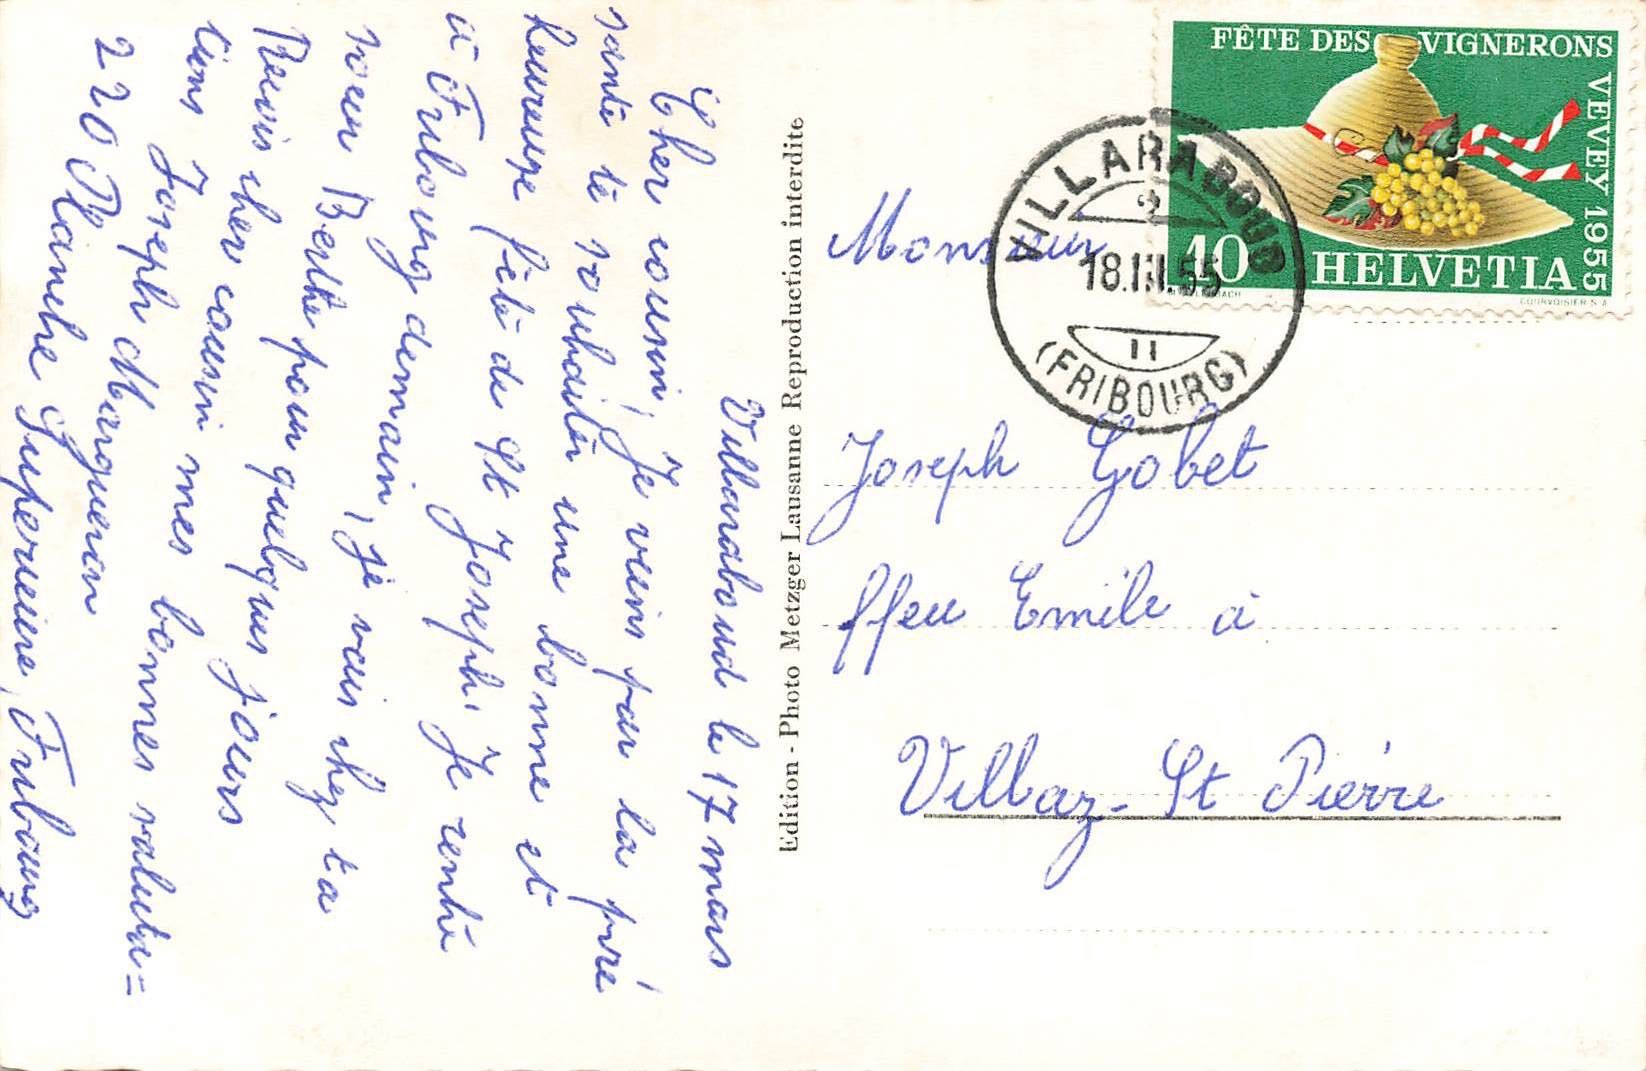 Villaraboud le 17 mars
Cher cousin, Je viens par la pré
sante te souhaiter une bonne et
heureuse fête de St Joseph, Je rentre
à Fribourg demain, je vais chez ta
soeur Berthe pour quelques jours
Reçois cher cousin mes bonnes saluta=
tions Joseph Margueron
220 Planche Superieure, Fribourg
Edition - Photo Metzger Lausanne Reproduction interdite
FÊTE DES VIGNERONS
VEVEY 1955
10 HELVETIA
COURVOISIER S.A.
VILLARABOUD
18.III.55
II
(FRIBOURG)
Monsieur
Joseph Gobet
ffeu Emile à
Villaz-St Pierre